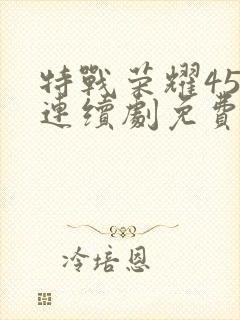 特戰荣耀45
連續劇免費
冷培恩